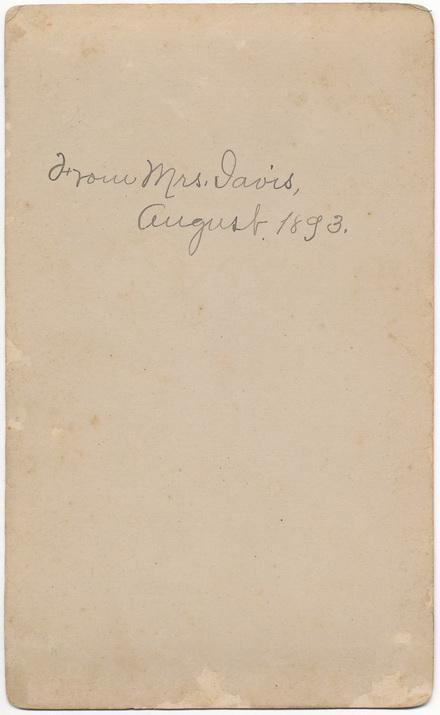 From Mrs. Davis,
August, 1893.